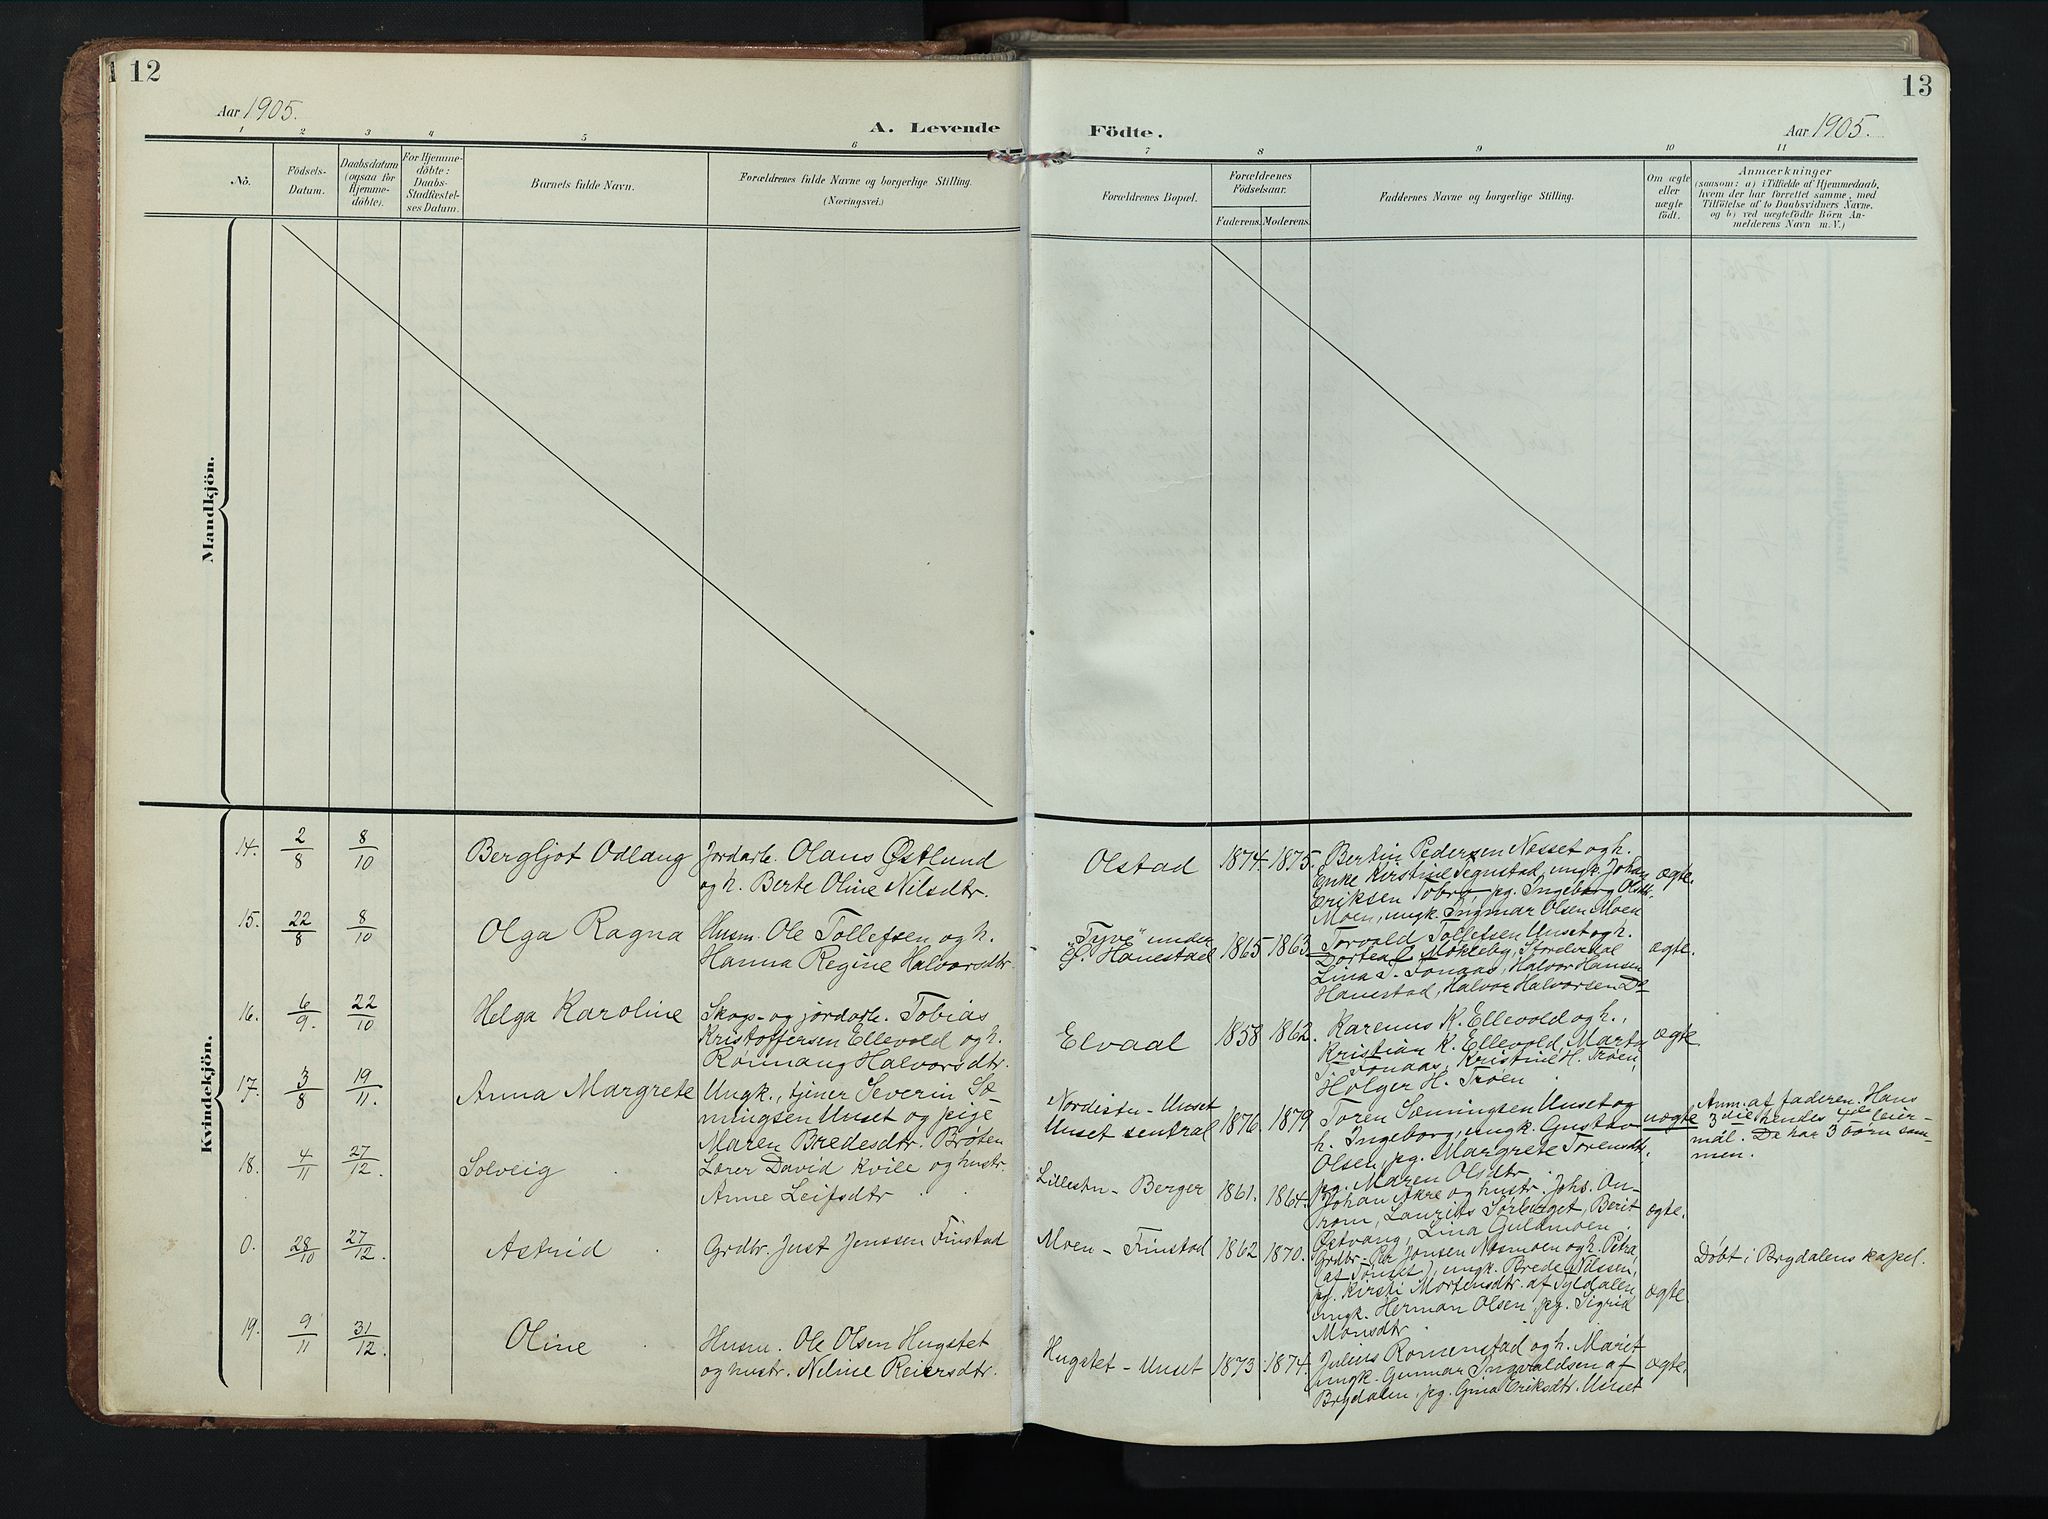 12
13
Aar 1905.
A. Levende
Födte.
Aar 1905.
1 2 3 4 5 6
7 8 9 10 11
No.
Födsels-
Datum.
Daabsdatum
(ogsaa for
Hjemme-
döbte).
For Hjemme-
döbte:
Daabs-
Stadfæstel-
ses Datum.
Barnets fulde Navn.
Forældrenes fulde Navne og borgerlige Stilling.
(Næringsvei.)
Forældrenes Bopæl.
Forældrenes
Födselsaar.
Faderens. Moderens.
Faddernes Navne og borgerlige Stilling.
Om ægte
eller
uægte
födt.
Anmærkninger
(saasom: a) i Tilfælde af Hjemmedaab,
hvem der har forrettet samme, med
Tilföielse af to Daabsvidners Navne,
og b) ved uægtefödte Börn An-
melderens Navn m. V.)
Mandkjön.
Kvindekjön.
14. 2/8 8/10 Bergljot Odlaug
Jordarb. Olaus Østlund
og h. Berte Oline Nilsdtr.
Olstad 1874. 1875.
Bertin Pedersen Nesset og h.
Enke Kirstine Tegnstad, ungk. Johan
Eriksen Tobro, pg. Ingeborg Olsdt.
Moen, ungk. Ingmar Olsen Moen
ægte.
15. 22/8 8/10 Olga Ragna
Husm. Ole Tollefsen og h.
Hanna Regine Halvorsdtr.
"Tyve" under
Ø. Hanestad 1865 1863
Torvald Tollefsen Unset og h.
Dortea Møkleby, Storelvdal
Lina T. Tonaas, Halvor Hansen
Hanestad, Halvor Halvorsen Do
ægte.
16. 6/9. 22/10 Helga Karoline
Skogs- og jordarb. Tobias
Kristoffersen Ellevold og h.
Rønnaug Halvorsdtr.
Elvaal 1858 1862.
Karenus K. Ellevold og h.,
Kristian K. Ellevold, Marta
T. Tonaas, Kristine H. Trøen,
Holger H. Trøen.
ægte
17. 3/8 19/11. Anna Margrete
Ungk., tjener Severin Sæ-
mingsen Unset og pige
Maren Bredesdtr. Brøten
Nordistu - Unset
Unset sentral 1876. 1879
Toren Sæmingsen Unset og
h. Ingeborg, ungk. Gustav
Olsen, pg. Margrete Torensdtr.
pg. Maren Olsdtr.
uægte
Anm. af faderen. Hans
3die hendes 4de leier-
mål. De har 3 børn sam-
men.
18. 4/11 27/12. Solveig
Lærer David Kvile og hustr.
Anne Leifsdtr.
Lillestu - Berger 1861. 1864.
Johan Akre og hustr. Johs. An-
trom, Laurits Sørberget, Berit
Østvang, Lina Guldmoen.
ægte.
0. 28/10 27/12. Astrid
Grdbr. Just Jenssen Finstad
Moen - Finstad 1862 1870.
Grdbr. Per Jonsen Nesmoen og h. Petra
(af Tønset), ungk. Brede Nilssen,
pg. Kirsti Mortensdtr. af Tyldalen,
ungk. Herman Olsen, pg. Sigrid
Monsdtr.
ægte.
Døbt i Brydalens kapel.
19. 9/11 31/12. Oline
Husm. Ole Olsen Hugstet
og hustr. Neline Reiersdtr.
Hugstet - Unset 1873 1874.
Julius Romenstad og h. Marit
ungk. Gunnar Ingvaldsen af
Brydalen, pg. Gina Eriksdtr. Unset
ægte.